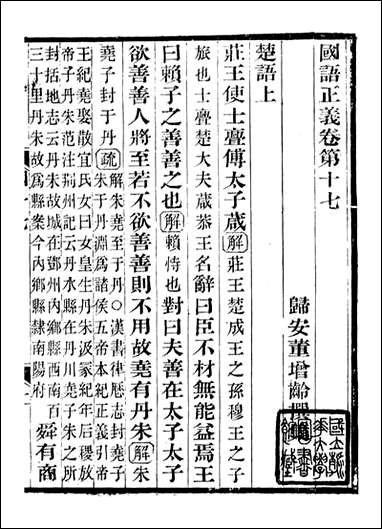 國語正義卷第十七
歸安董增齡撰
楚語上
莊王使士亹傅太子葴解莊王楚成王之孫穆王之子
旅也士亹楚大夫葴恭王名辭曰臣不材無能益焉王
曰賴子之善善之也解賴恃也對曰夫善在太子太子
欲善善人將至若不欲善善則不用故堯有丹朱解朱
堯子封于丹疏解朱堯至于丹○漢書律歷志封堯子
朱于丹淵爲諸侯五帝本紀正義引帝
王紀堯娶散宜氏女曰女皇生丹朱汲冢紀年后稷放
帝子丹朱范汪荆州記云丹水縣在丹川堯子朱之所
封括地志云丹朱故城在鄧州內鄉縣西南百
三十里丹朱故爲縣案今內鄉縣隸南陽府舜有商